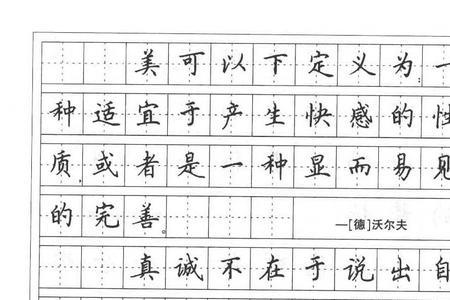 美可以下定义为一
种适宜于产生快感的性
质或者是一种显而易见
的完善。 —[德]沃尔夫
真诚不在于说出自